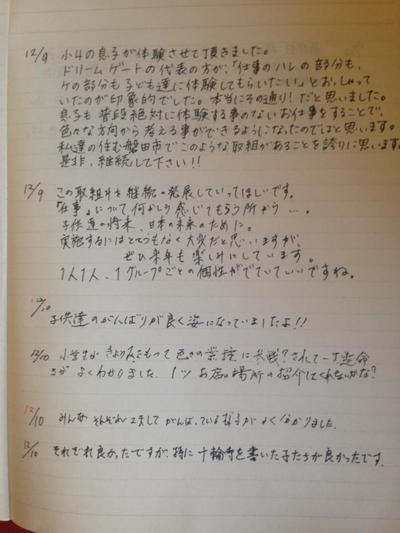 12/9 小4の息子が体験させて頂きました。
ドリームゲートの代表の方が、「仕事のハレの部分も、
ケの部分も子ども達に体験してもらいたい」とおっしゃって
いたのが印象的でした。本当にその通り!だと思いました。
息子も普段絶対に体験する事のないお仕事をすることで、
色々な方向から考える事ができるようになったのではと思います。
私達の住む磐田市でこのような取組があることを誇りに思います。
是非、継続して下さい!!
12/9 この取組みを継続・発展していってほしいです。
「仕事」について何かしら感じてもらう所から…。
子供達の将来、日本の未来のために。
実施するにはとてつもなく大変だと思いますが、
ぜひ来年も楽しみにしています。
1人1人、1グループごとの個性がでていていいですね。
12/10
子供達のがんばりが良く姿になっていましたよ!!
12/10 小学生がきょうみをもって色々の業種に挑戦?されて一生懸命
さがよくわかりました。1ツお店の場所の紹介はくれないかな?
12/10 みんなそれぞれ工夫してがんばっている様子がよく分かりました。
12/10 それぞれ良かったですが、特に十輪寺を書いた子たちが良かったです。